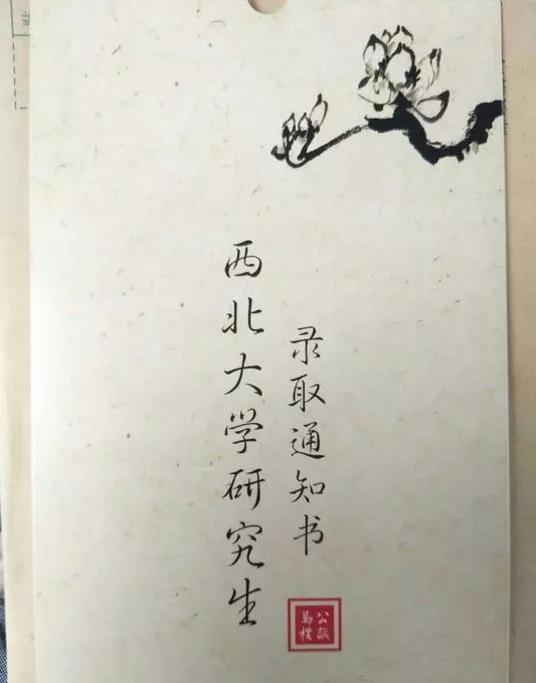 西北大学研究生
录取通知书
公诚
勤朴